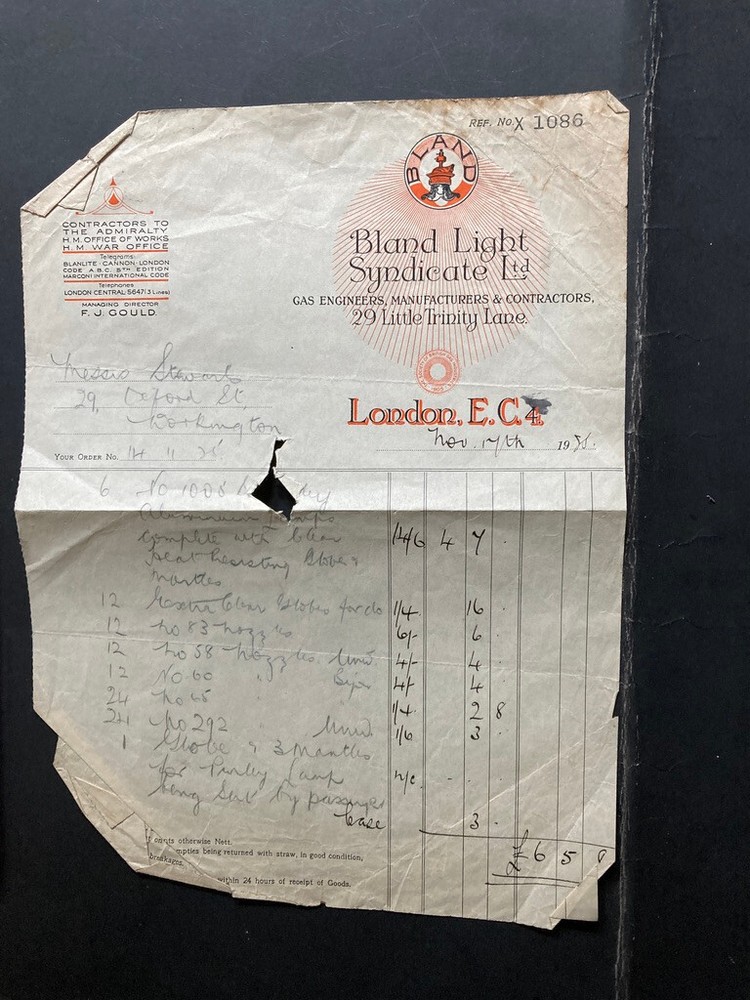 REF. No. X 1086
BLAND
Bland Light
Syndicate Ltd
GAS ENGINEERS, MANUFACTURERS & CONTRACTORS,
29 Little Trinity Lane.
London, E.C.4.
CONTRACTORS TO
THE ADMIRALTY
H.M. OFFICE OF WORKS
H.M. WAR OFFICE
Telegrams:
BLANLITE·CANNON·LONDON
CODE A.B.C. 5TH EDITION
MARCONI INTERNATIONAL CODE
Telephones
LONDON CENTRAL 5647 (3 Lines)
MANAGING DIRECTOR
F. J. GOULD.
Messrs Stewart
29, Oxford St,
Workington
Nov. 17th 1935.
YOUR ORDER No. 14 11 35
6 No 1008
Aluminium Lamps
complete with Clear 14/6 4 7 .
Heat Resisting Globes &
Mantles
12 Extra Clear Globes for do 1/4 16 .
12 No 83 nozzles 6/- 6 .
12 No 58 nozzles 4/- 4 .
12 No 60 " 4/- 4 .
24 No 65 1/4 2 8
24 No 292 1/6 3 .
1 Globe & 3 Mantles
for Purley Lamp
being sent by passenger
Case 3 .
£6 5
otherwise Nett.
empties being returned with straw, in good condition,
breakages.
within 24 hours of receipt of Goods.